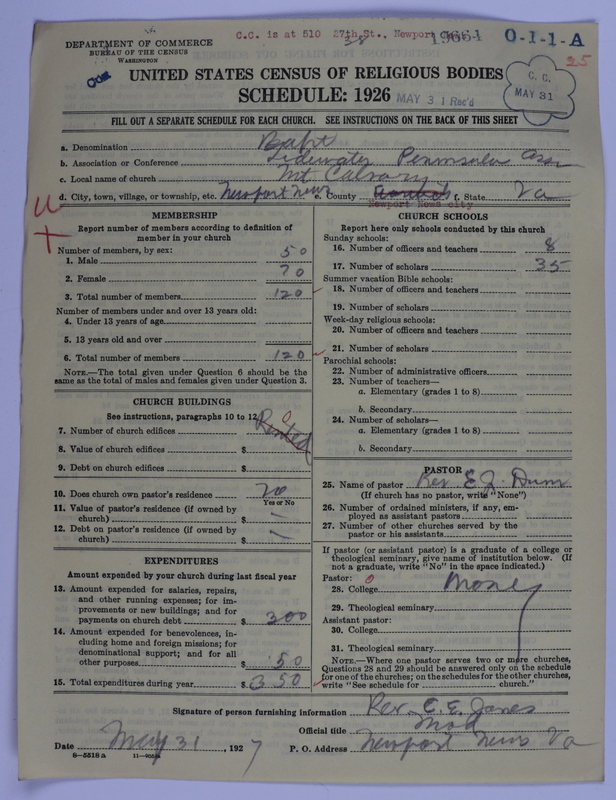 C.C. is at 510 27th St., Newport
DEPARTMENT OF COMMERCE
BUREAU OF THE CENSUS
WASHINGTON
0-1-1-A
25
UNITED STATES CENSUS OF RELIGIOUS BODIES
SCHEDULE: 1926
MAY 31 Rec'd
C. C.
MAY 31
FILL OUT A SEPARATE SCHEDULE FOR EACH CHURCH. SEE INSTRUCTIONS ON THE BACK OF THIS SHEET
a. Denomination Bapt
b. Association or Conference Tidewater Peninsula Assn
c. Local name of church Mt Calvary
d. City, town, village, or township, etc. Newport News e. County Newport News city f. State Va
MEMBERSHIP
Report number of members according to definition of member in your church
Number of members, by sex:
1. Male 50
2. Female 70
3. Total number of members 120
Number of members under and over 13 years old:
4. Under 13 years of age
5. 13 years old and over
6. Total number of members 120
NOTE.—The total given under Question 6 should be the same as the total of males and females given under Question 3.
CHURCH BUILDINGS
See instructions, paragraphs 10 to 12
7. Number of church edifices 0 Rented
8. Value of church edifices $
9. Debt on church edifices $
10. Does church own pastor's residence no
Yes or No
11. Value of pastor's residence (if owned by church) $
12. Debt on pastor's residence (if owned by church) $
EXPENDITURES
Amount expended by your church during last fiscal year
13. Amount expended for salaries, repairs, and other running expenses; for improvements or new buildings; and for payments on church debt $ 300
14. Amount expended for benevolences, including home and foreign missions; for denominational support; and for all other purposes $ 50
15. Total expenditures during year $ 350
CHURCH SCHOOLS
Report here only schools conducted by this church
Sunday schools:
16. Number of officers and teachers 8
17. Number of scholars 35
Summer vacation Bible schools:
18. Number of officers and teachers
19. Number of scholars
Week-day religious schools:
20. Number of officers and teachers
21. Number of scholars
Parochial schools:
22. Number of administrative officers
23. Number of teachers—
a. Elementary (grades 1 to 8)
b. Secondary
24. Number of scholars—
a. Elementary (grades 1 to 8)
b. Secondary
PASTOR
25. Name of pastor Rev E. J. Dunn
(If church has no pastor, write "None")
26. Number of ordained ministers, if any, employed as assistant pastors
27. Number of other churches served by the pastor or his assistants
If pastor (or assistant pastor) is a graduate of a college or theological seminary, give name of institution below. (If not a graduate, write "No" in the space indicated.)
Pastor: 0
28. College
29. Theological seminary
Assistant pastor:
30. College
31. Theological seminary
NOTE.—Where one pastor serves two or more churches, Questions 28 and 29 should be answered only on the schedule for one of the churches; on the schedules for the other churches, write "See schedule for church."
Signature of person furnishing information Rev. E. E. Jones
Official title Mod
Date May 31, 1927 P. O. Address Newport News Va
8-5518 a